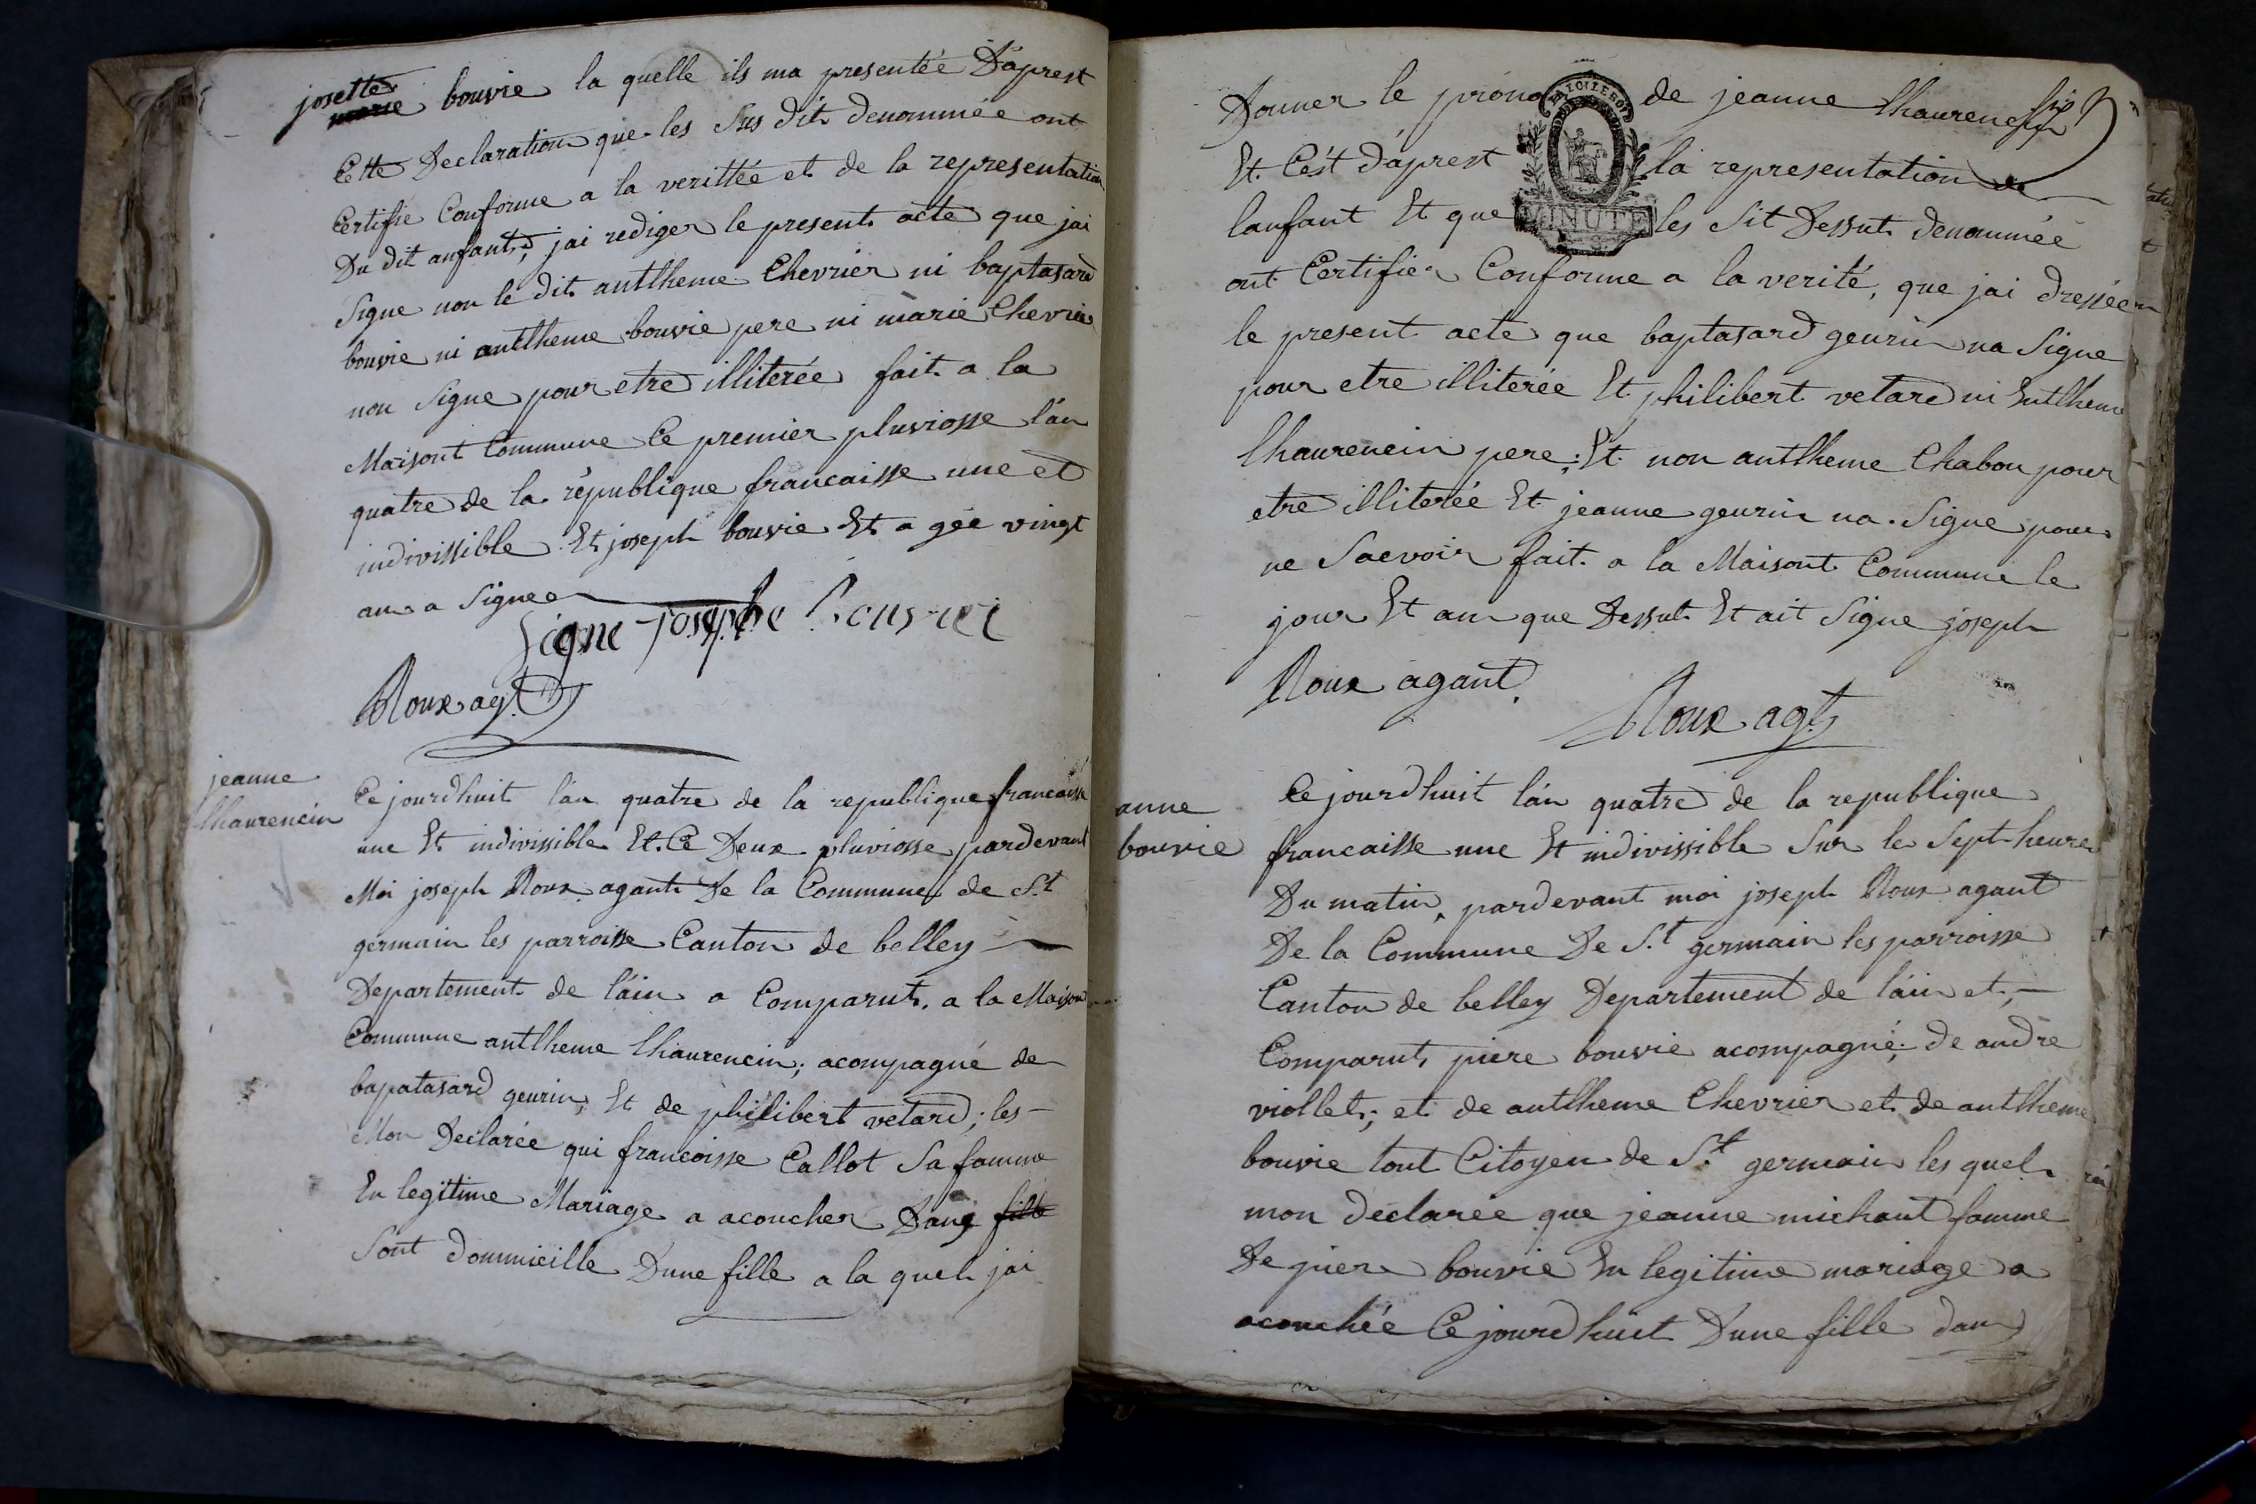 josette
marie bouvie la quelle ils ma presentée D'aprest
Cette Declaration que les Sus dit denommée ont
Certifie Conforme a la verittée et de la representation
Du dit anfant, jai rediger le present acte que jai
Signe non le dit antlheme Chevrier ni baptasard
bouvie ni antlheme bouvie pere ni marie Chevrier
non Signe pour etre illiterée fait a la
Maisont Commune Ce premier pluviosse l'an
quatre de la republique francaisse une et
indivissible Et joseph bouvie Et a gée vingt
an a Signee
Signe josephe
Roux agt
jeanne
lhaurencin
Ce jourdhuit l'an quatre de la republique francaisse
une Et indivissible Et Ce Deux pluviosse pardevant
Moi joseph Roux agant De la Commune de S.t
germain les parroisse Canton de belley
Departement de l'ain a Comparut a la Maison
Commune antlheme lhaurencin; acompagné de
bapatasard geurin, Et de philibert vetard; les
Mon Declarée qui francoisse Callot Sa famme
En legitime Mariage a acoucher Dans fille
Sont dommicille Dune fille a la quel jai
LA LOI LE ROI
MINUTE
Donner le prono de jeanne lhaurencin
Et C'est d'aprest la representation de
lanfant Et que les Sit Dessut denommée
ont Certifier Conforme a la verité, que jai dressée
le present acte que baptasard geurin na Signe
pour etre illiterée Et philibert vetard ni Entlheme
lhaurencin pere; Et non antlheme Chabou pour
etre illiterée Et jeanne geurin na Signe pour
ne Saevoir fait a la Maisont Commune le
jour Et an que Dessut Et ait Signe joseph
Roux agant
Roux agt
anne
bouvie
Ce jourdhuit l'an quatre de la republique
francaisse une Et indivissible Sur le Sept heure
Du matin, pardevant moi joseph Roux agant
De la Commune De S.t germain les parroisse
Canton de belley Departement de l'ain et
Comparut piere bouvie acompagné; de andre
viollet; et de antlheme Chevrier et de antlheme
bouvie tout Citoyen de St germain les quel
mon declarée que jeanne michaut famme
De piere bouvie En legitime mariage a
acouchée Ce jourdhuit Dune fille dans